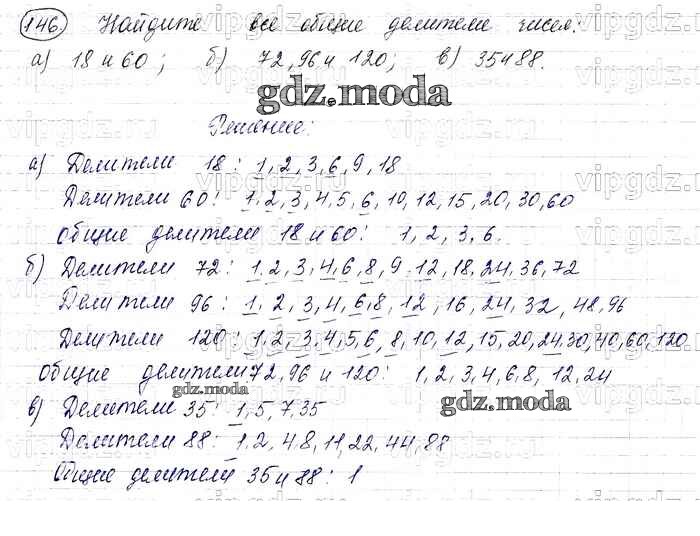 146. Найдите все общие делители чисел:
а) 18 и 60; б) 72, 96 и 120; в) 35 и 88.
gdz.moda
Решение:
а) Делители 18: 1, 2, 3, 6, 9, 18
Делители 60: 1, 2, 3, 4, 5, 6, 10, 12, 15, 20, 30, 60
общие делители 18 и 60: 1, 2, 3, 6.
б) Делители 72: 1, 2, 3, 4, 6, 8, 9, 12, 18, 24, 36, 72
Делители 96: 1, 2, 3, 4, 6, 8, 12, 16, 24, 32, 48, 96
Делители 120: 1, 2, 3, 4, 5, 6, 8, 10, 12, 15, 20, 24, 30, 40, 60, 120
общие делители 72, 96 и 120: 1, 2, 3, 4, 6, 8, 12, 24
gdz.moda
gdz.moda
в) Делители 35: 1, 5, 7, 35
Делители 88: 1, 2, 4, 8, 11, 22, 44, 88
Общие делители 35 и 88: 1
vipgdz.ru